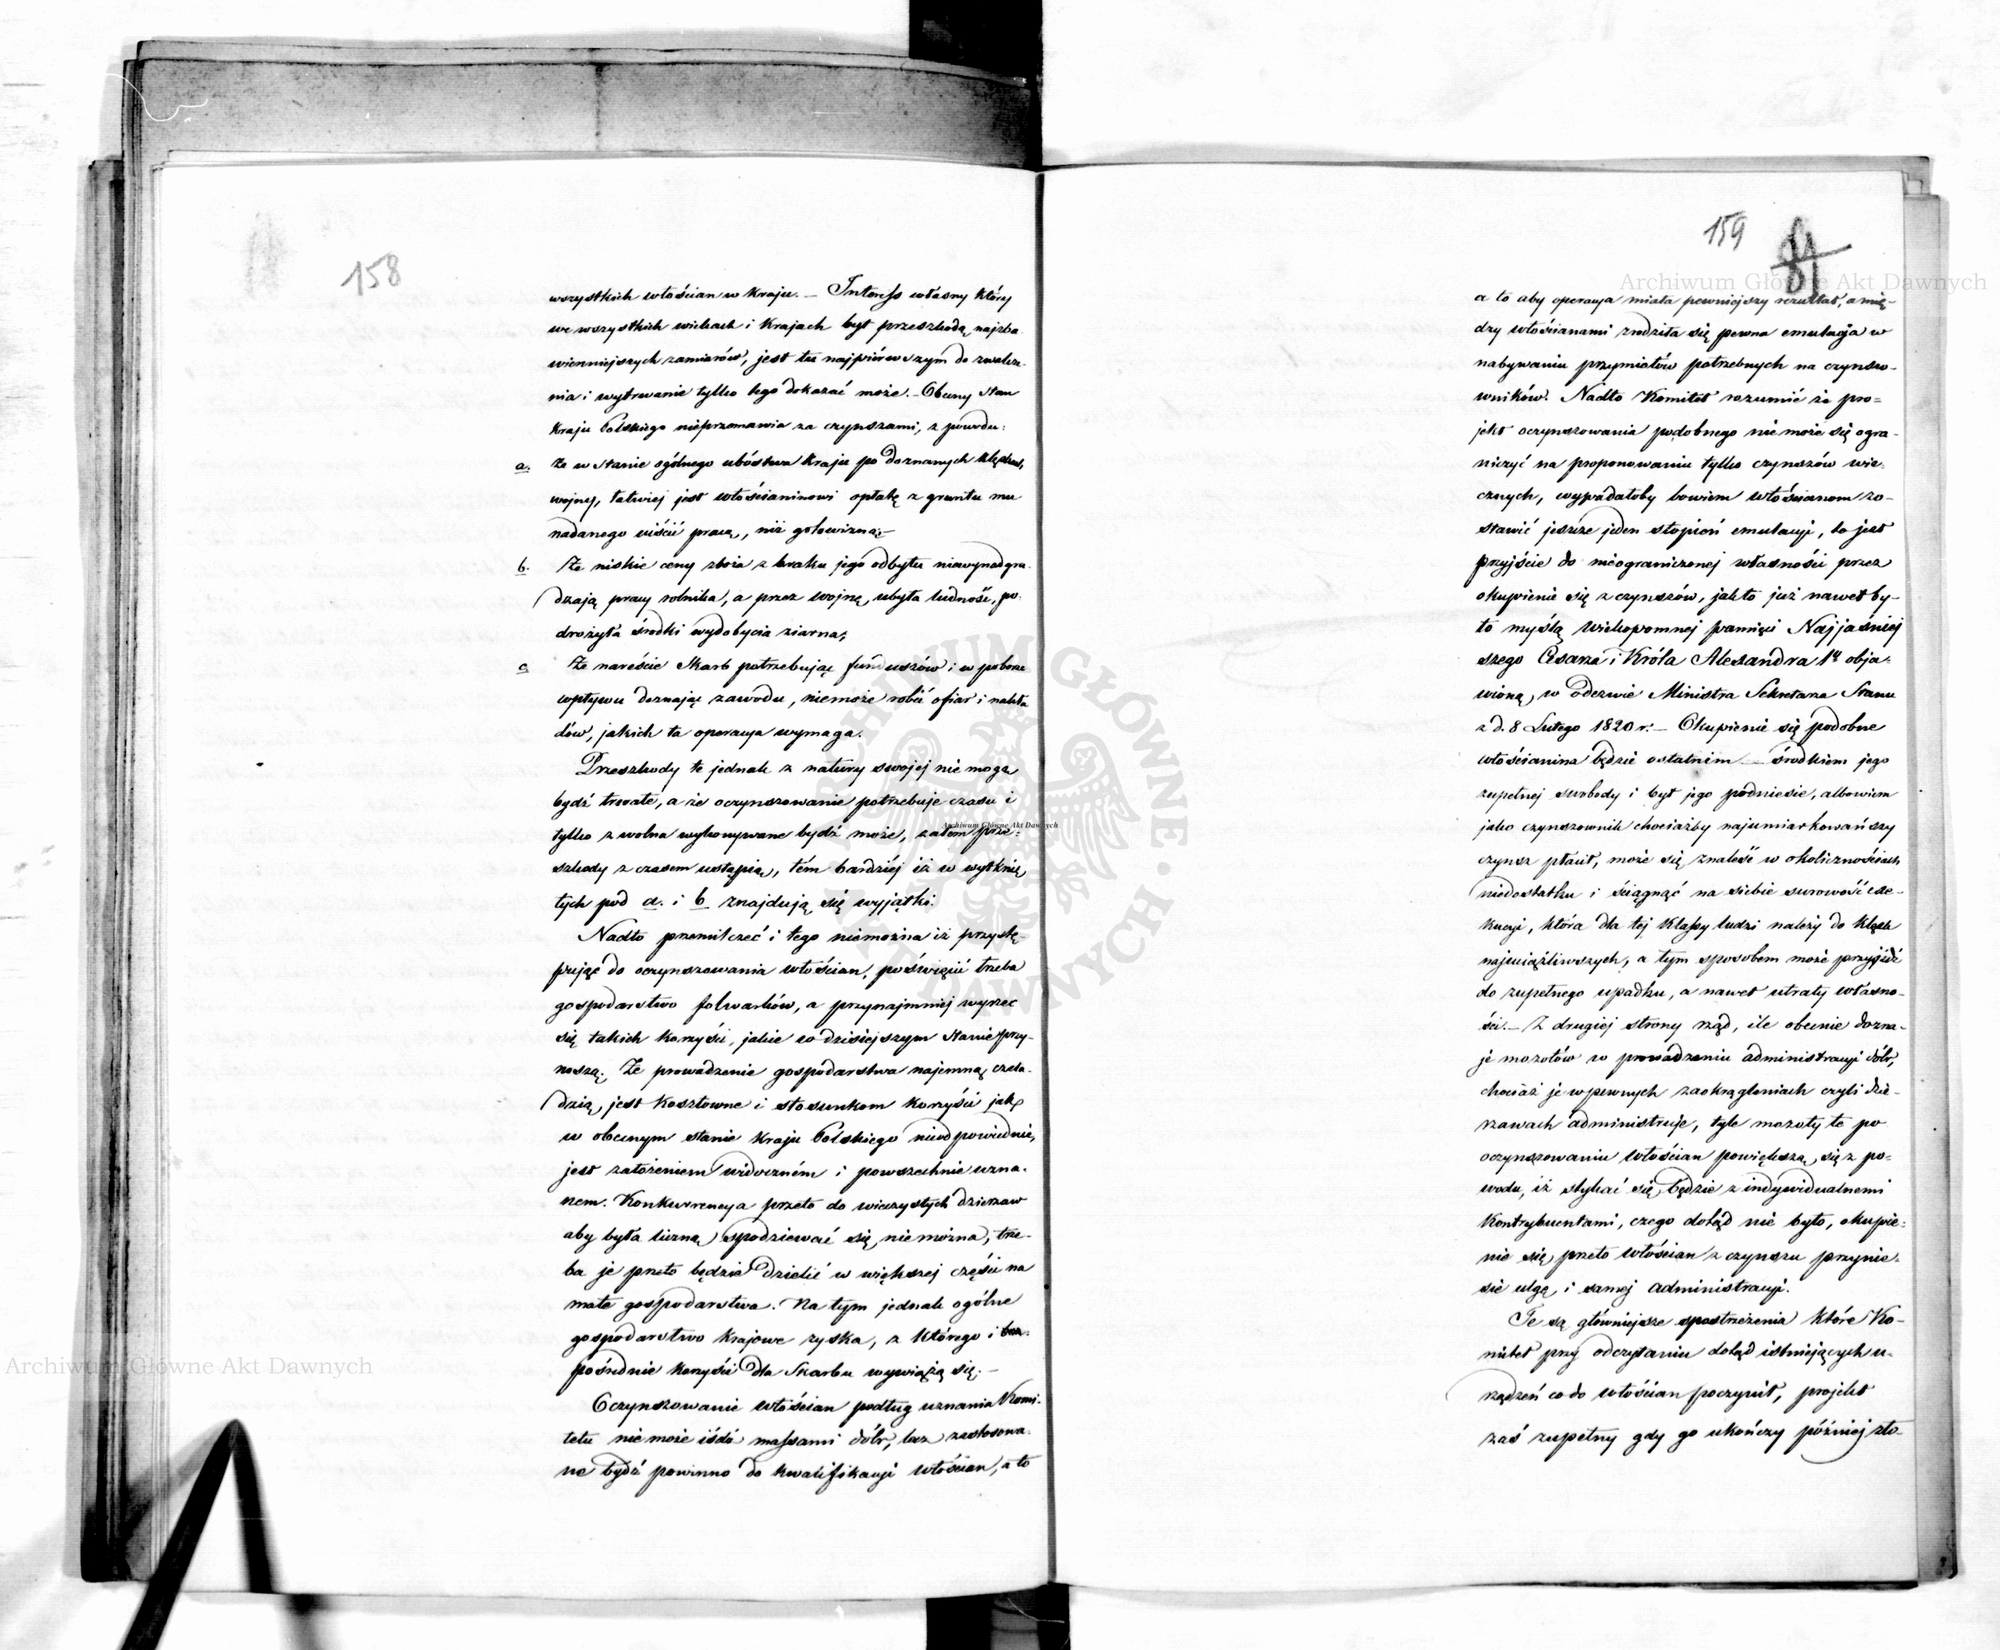 158
wszystkich włościan w kraju. — Interess własny który
we wszystkich wiekach i krajach był przeszkodą najzba-
wienniejszych zamiarów, jest tu najpiérwszym do zwalcze-
nia i wytrwanie tylko tego dokazać może. — Obecny stan
kraju Polskiego nieprzemawia za czynszami, z powodu:
a. że w stanie ogólnego ubóstwa kraju po doznanych klęskach
wojny, łatwiej jest włościaninowi opłatę z gruntu mu
nadanego uiścić pracą, niż gotowizną; —
b. Że niskie ceny zboża z braku jego odbytu niewynadgra-
dzają pracy rolnika, a przez wojnę, ubyła ludność, po-
drożyła środki wydobycia ziarna;
c Że nareście Skarb potrzebując funduszów i w poborze
wpływu doznając zawodu, niemoże robić ofiar i nakła-
dów, jakich ta operacya wymaga.
Przeszkody te jednak z natury swojej nie mogą
bydź trwałe, a że oczynszowanie potrzebuje czasu i
tylko z wolna wykonywane bydź może, zatem prze-
szkody z czasem ustąpią, tém bardziej iż w wytknię
tych pod a. i b znajdują się wyjątki.
Nadto przemilczeć i tego niemożna iż przystę-
pując do oczynszowania włościan, poświęcić trzeba
gospodarstwo folwarków, a przynajmniej wyrzec
się takich korzyści, jakie w dzisiejszym stanie przy-
noszą. Że prowadzenie gospodarstwa najemną czela-
dzią, jest kosztowne i stosunkom korzyści jak
w obecnym stanie kraju Polskiego nieodpowiednie,
jest założeniem widoczném i powszechnie uzna-
nem. Konkurrencya przeto do wieczystych dzierżaw
aby była liczną spodziewać się nie można, trze-
ba je przeto będzie dzielić w większej części na
małe gospodarstwa. Na tym jednak ogólne
gospodarstwo krajowe zyska, z którego i bez-
pośrednie korzyści dla Skarbu wywiążą się. —
Oczynszowanie włościan podług uznania Komi-
tetu nie może iśdź massami dóbr, lecz zastosowa-
ne bydź powinno do kwalifikacyi włościan, a to
159
a to aby operacya miała pewniejszy rezultat, a mię-
dzy włościanami zrodziła się pewna emulacja w
nabywaniu przymiotów potrzebnych na czynszo-
wników. Nadto Komitet rozumié że pro-
jekt oczynszowania podobnego nie może się ogra-
niczyć na proponowaniu tylko czynszów wie-
cznych, wypadałoby bowiem włościanom zo-
stawić jeszcze jeden stopień emulacyi, to jest
przyjście do nieograniczonej własności przez
okupienie się z czynszów, jak to już nawet by-
ło myślą wiekopomnej pamięci Najjaśniej
szego Cesarza i Króla Alexandra 1º obja-
wioną, w odezwie Ministra Sekretarza Stanu
z d. 8 Lutego 1820 r. — Okupienie się podobne
włościanina będzie ostatnim środkiem jego
zupełnej swobody i byt jego podniesie, albowiem
jako czynszownik chociażby najumiarkowańszy
czynsz płacił, może się znaleść w okolicznościach
niedostatku i ściągnąć na siebie surowość exe-
kucyi, która dla tej klassy ludzi należy do klęsk
najuciążliwszych, a tym sposobem może przyjśdź
do zupełnego upadku, a nawet utraty własno-
ści. — Z drugiej strony rząd, ile obecnie dozna-
je mozołów w prowadzeniu administracyi dóbr,
chociaż je w pewnych zaokrągleniach czyli dzie-
rzawach administruje, tyle mozoły te po
oczynszowaniu włościan powiększą się z po-
wodu, iż stykać się będzie z indywidualnemi
kontrybuentami, czego dotąd nie było, okupie-
nie się przeto włościan z czynszu przynie-
sie ulgę i samej administracyi.
Te są główniejsze spostrzeżenia które Ko-
mitet przy odczytaniu dotąd istniejących u-
rządzeń co do włościan poczynił, projekt
zaś zupełny gdy go ukończy później zło-
Archiwum Główne Akt Dawnych
Archiwum Główne Akt Dawnych
Archiwum Główne Akt Dawnych
ARCHIWUM GŁÓWNE AKT DAWNYCH